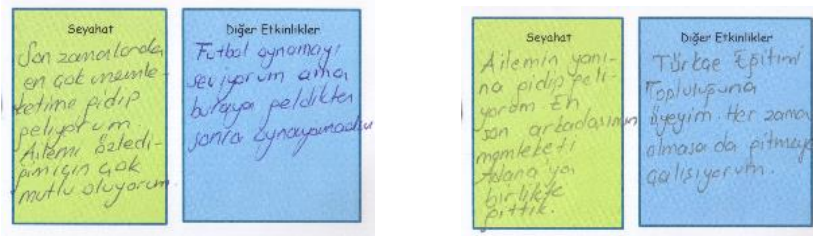 Seyahat
Son zamanlarda
en çok memle-
ketime gidip
geliyorum.
Ailemi özledi-
ğim için çok
mutlu oluyorum.
Diğer Etkinlikler
Futbol oynamayı
seviyorum ama
buraya geldikten
sonra oynayamadım
Seyahat
Ailemin yanı-
na gidip geli-
yorum. En
son arkadaşımın
memleketi
Adana'ya
birlikte
gittik.
Diğer Etkinlikler
Türkçe Eğitimi
Topluluğuna
üyeyim. Her zaman
olmasa da gitmeye
çalışıyorum.